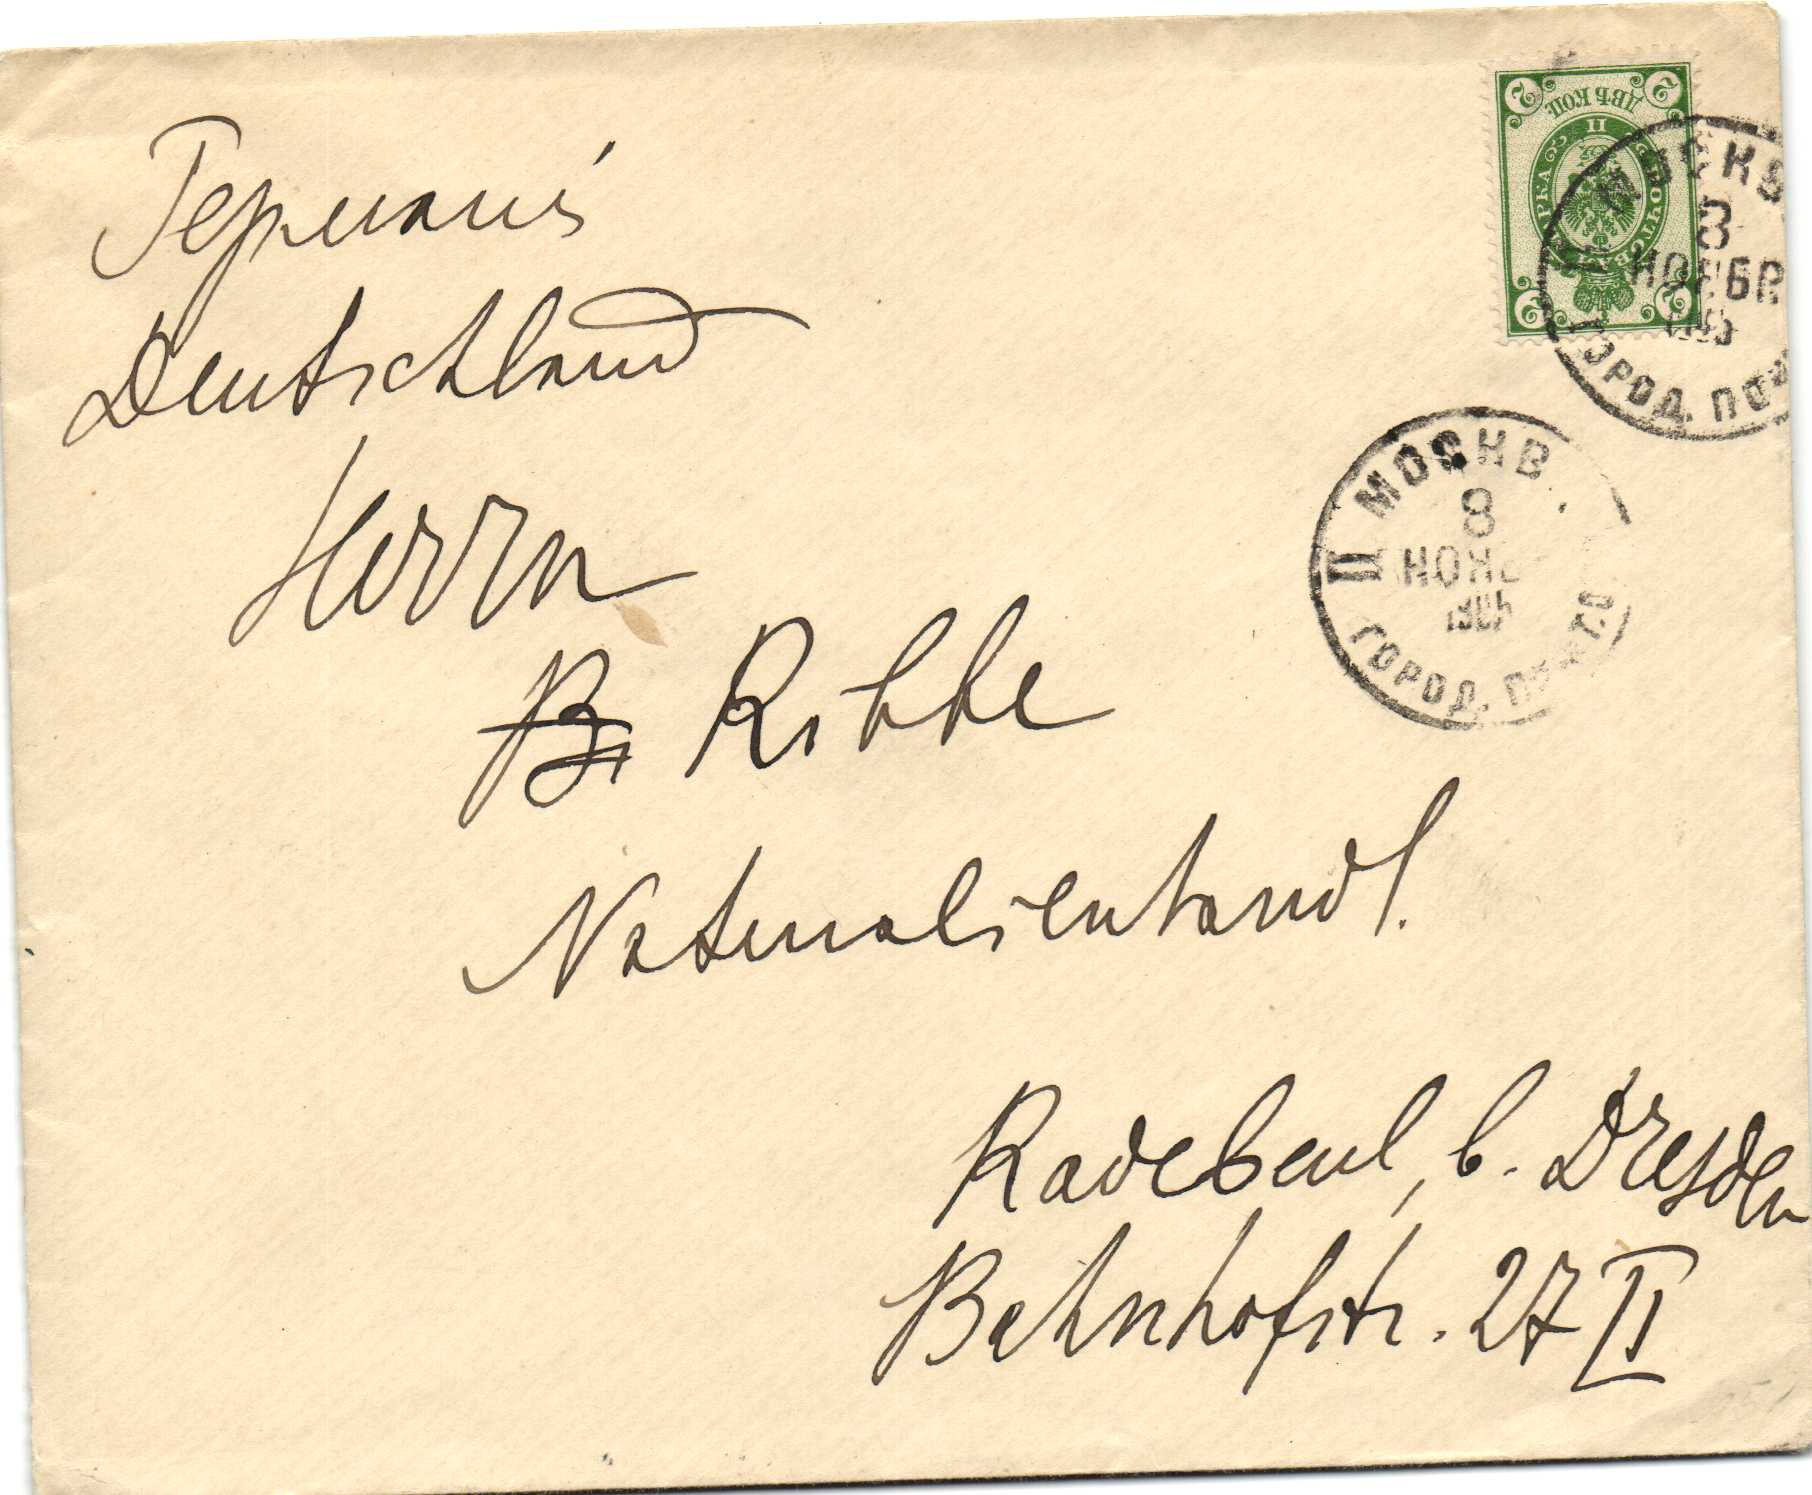 Германія
Deutschland
Herrn
Ribbe
Naturalienhandl.
Radebeul, b. Dresden
Bahnhofstr. 27 II
ДВѢ КОП
2 2
П
ПОЧТОВАЯ МАРКА
2 2
МОСКВ
8
НОЯБР
ГОРОД. ПОЧ
II МОСКВ
8
НОЯ
1905
ГОРОД. ПОЧТО